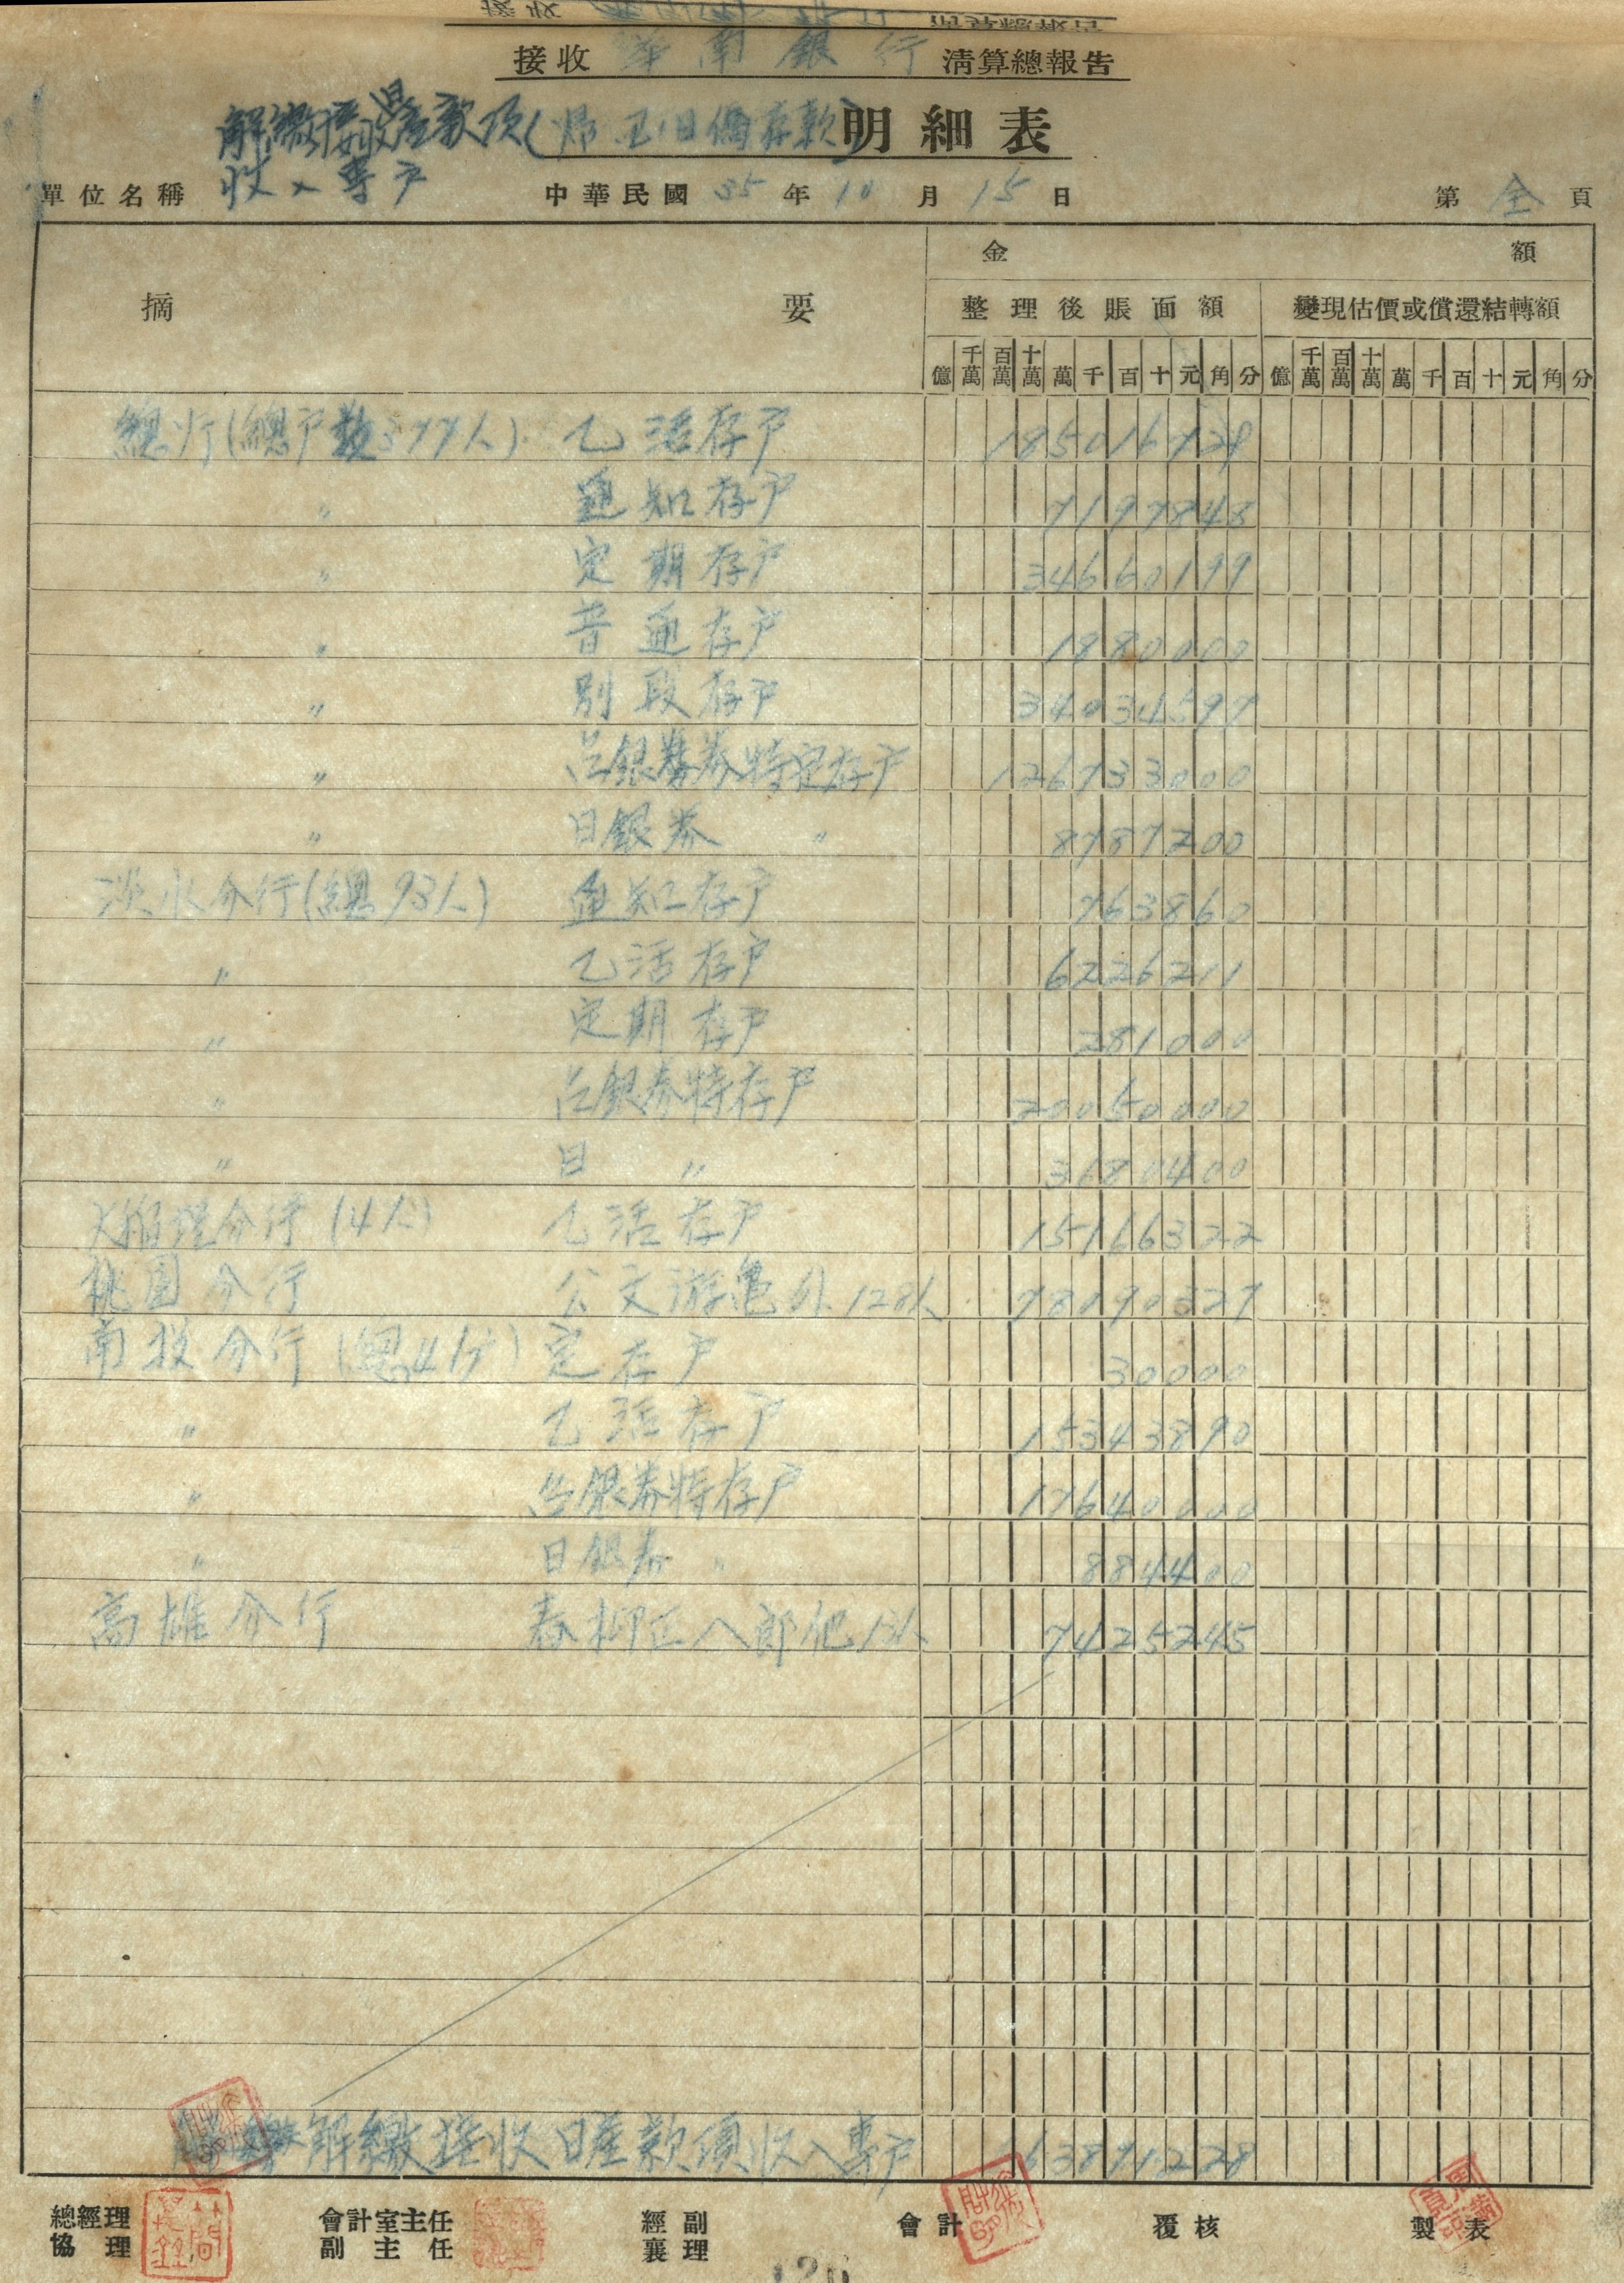 接收 華南銀行 清算總報告
解繳接收日產款項(歸还日僑存款)明細表
收入專戶
單位名稱 中華民國 35 年 10 月 15 日 第 全 頁
摘要 金額
整理後賬面額 變現估價或償還結轉額
億 千萬 百萬 十萬 萬 千 百 十 元 角 分 億 千萬 百萬 十萬 萬 千 百 十 元 角 分
總行(總戶数377人) 乙活存戶 185016729
〃 通知存戶 7197848
〃 定期存戶 34660199
〃 普通存戶 1880000
〃 別段存戶 34034597
〃 台銀券特定存戶 126733000
〃 日銀券 〃 8787200
淡水分行(總93人) 通知存戶 763860
〃 乙活存戶 6226211
〃 定期存戶 281000
〃 台銀券特存戶 20050000
〃 日 〃 3180400
大稻埕分行(4人) 乙活存戶 15166322
桃園分行 公文游亀外128人 78090327
南投分行(總41戶) 定存戶 30000
〃 乙活存戶 15343890
〃 台銀券特存戶 17640000
〃 日銀券 〃 884400
高雄分行 春柳正八郎他13人 7425245
解繳接收日產款項收入專戶 63891228
總經理 會計室主任 經副 會計 覆核 製表
協理 副主任 襄理
126